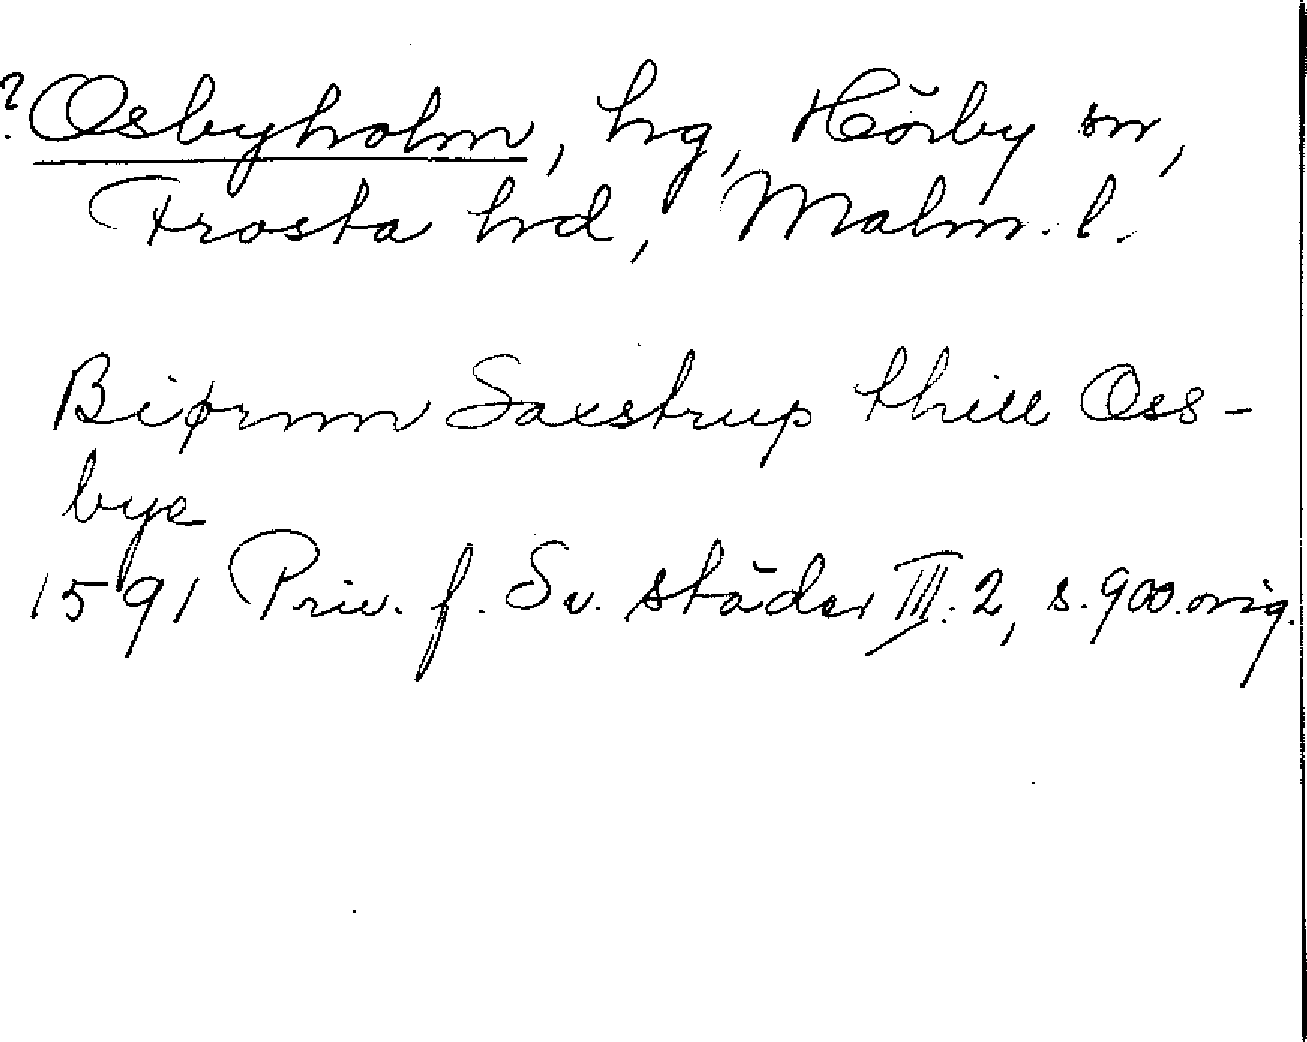 ? Osbyholm, hg, Hörby sn,
Frosta hd, Malm. l.
Biørnn Saxstrup thill Oss-
bye
1591 Priv. f. Sv. städer III. 2, s. 900. orig.